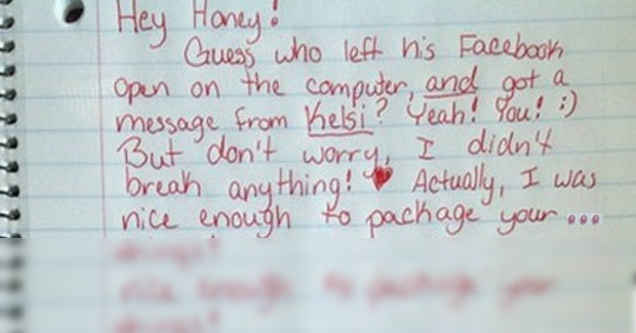 Hey Honey!
Guess who left his Facebook
open on the computer, and got a
message from Kelsi? Yeah! You! :)
But don't worry, I didn't
break anything! ♥ Actually, I was
nice enough to package your...